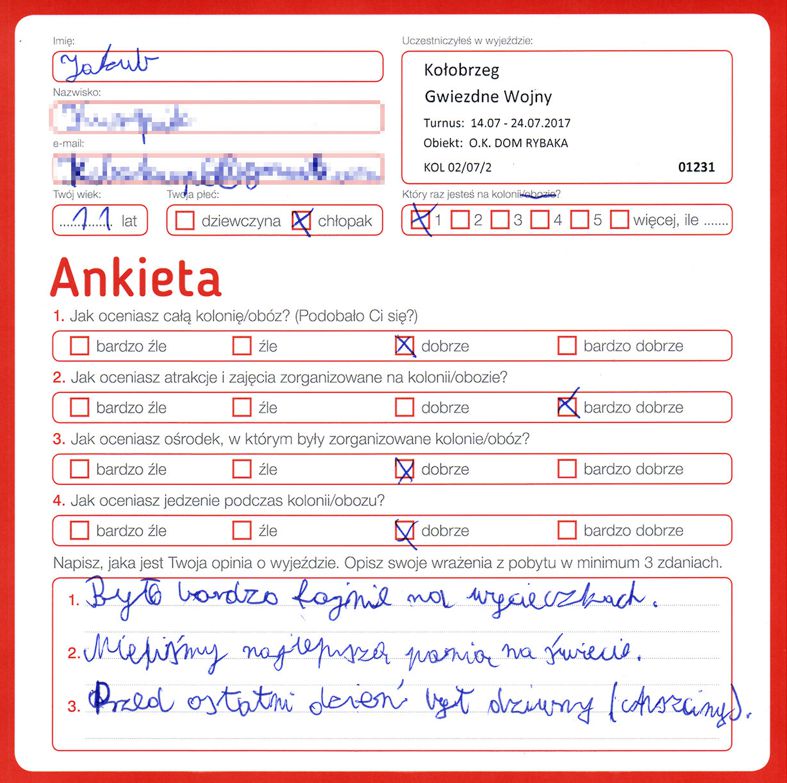 Imię:
Jakub
Uczestniczyłeś w wyjeździe:
Kołobrzeg
Gwiezdne Wojny
Turnus: 14.07 - 24.07.2017
Obiekt: O.K. DOM RYBAKA
KOL 02/07/2
01231
Nazwisko:
e-mail:
Twój wiek:
11 lat
Twoja płeć:
dziewczyna chłopak
Który raz jesteś na kolonii/obozie?
1 2 3 4 5 więcej, ile .......
Ankieta
1. Jak oceniasz całą kolonię/obóz? (Podobało Ci się?)
bardzo źle źle dobrze bardzo dobrze
2. Jak oceniasz atrakcje i zajęcia zorganizowane na kolonii/obozie?
bardzo źle źle dobrze bardzo dobrze
3. Jak oceniasz ośrodek, w którym były zorganizowane kolonie/obóz?
bardzo źle źle dobrze bardzo dobrze
4. Jak oceniasz jedzenie podczas kolonii/obozu?
bardzo źle źle dobrze bardzo dobrze
Napisz, jaka jest Twoja opinia o wyjeździe. Opisz swoje wrażenia z pobytu w minimum 3 zdaniach.
1. Było bardzo fajnie na wycieczkach.
2. Mieliśmy najlepszą panią na świecie.
3. Przed ostatni dzień był dziwny (chrzciny).